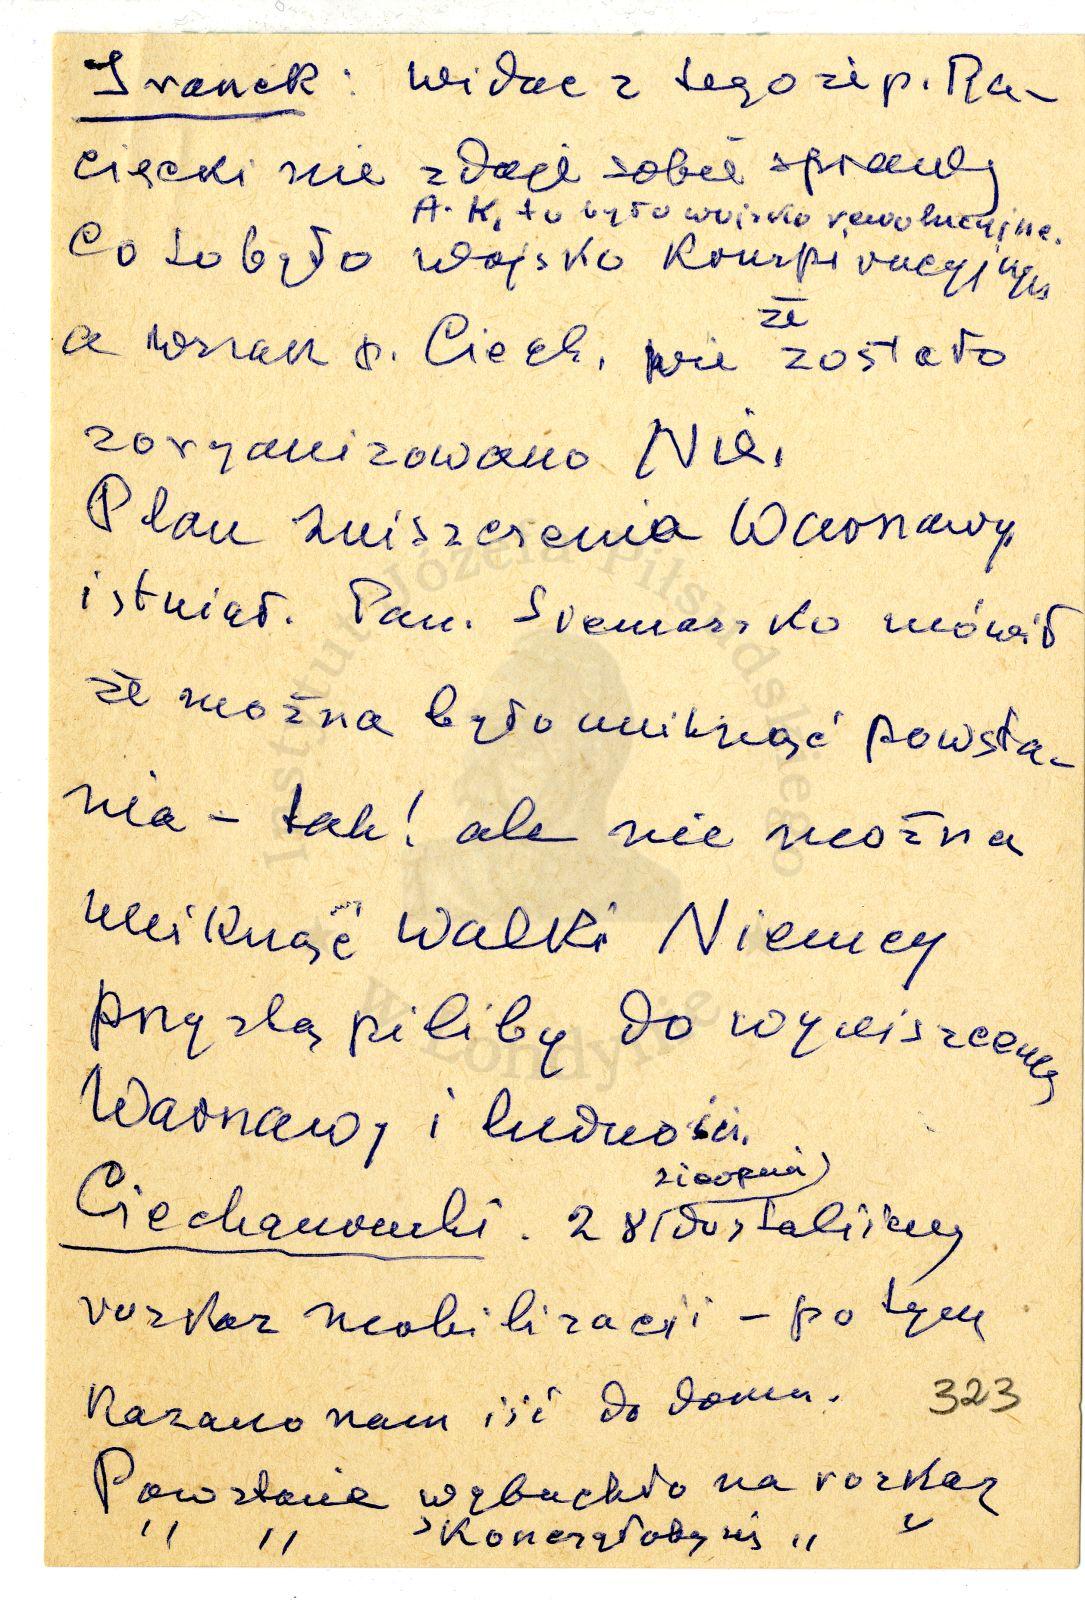 Iranek: widać z tego że p. Ra-
cięcki nie zdaje sobie sprawy
A.K. to było wojsko rewolucyjne.
co to było wojsko konspiracyjnym
a wszak p. Ciech. wie że zostało
zorganizowano Nie.
Plan zniszczenia Warszawy
istniał. Pan. mówił
że można było uniknąć powsta-
nia - tak! ale nie można
uniknąć walki Niemcy
przystąpiliby do wyniszczenia
Warszawy i ludności.
Ciechanowski. 28 (sierpnia) dostaliśmy
rozkaz mobilizacji - po tym
kazano nam iść do domu.
323
Powstanie wybuchło na rozkaz
" " skończyłoby się " "
Instytut Józefa Piłsudskiego
w Londynie